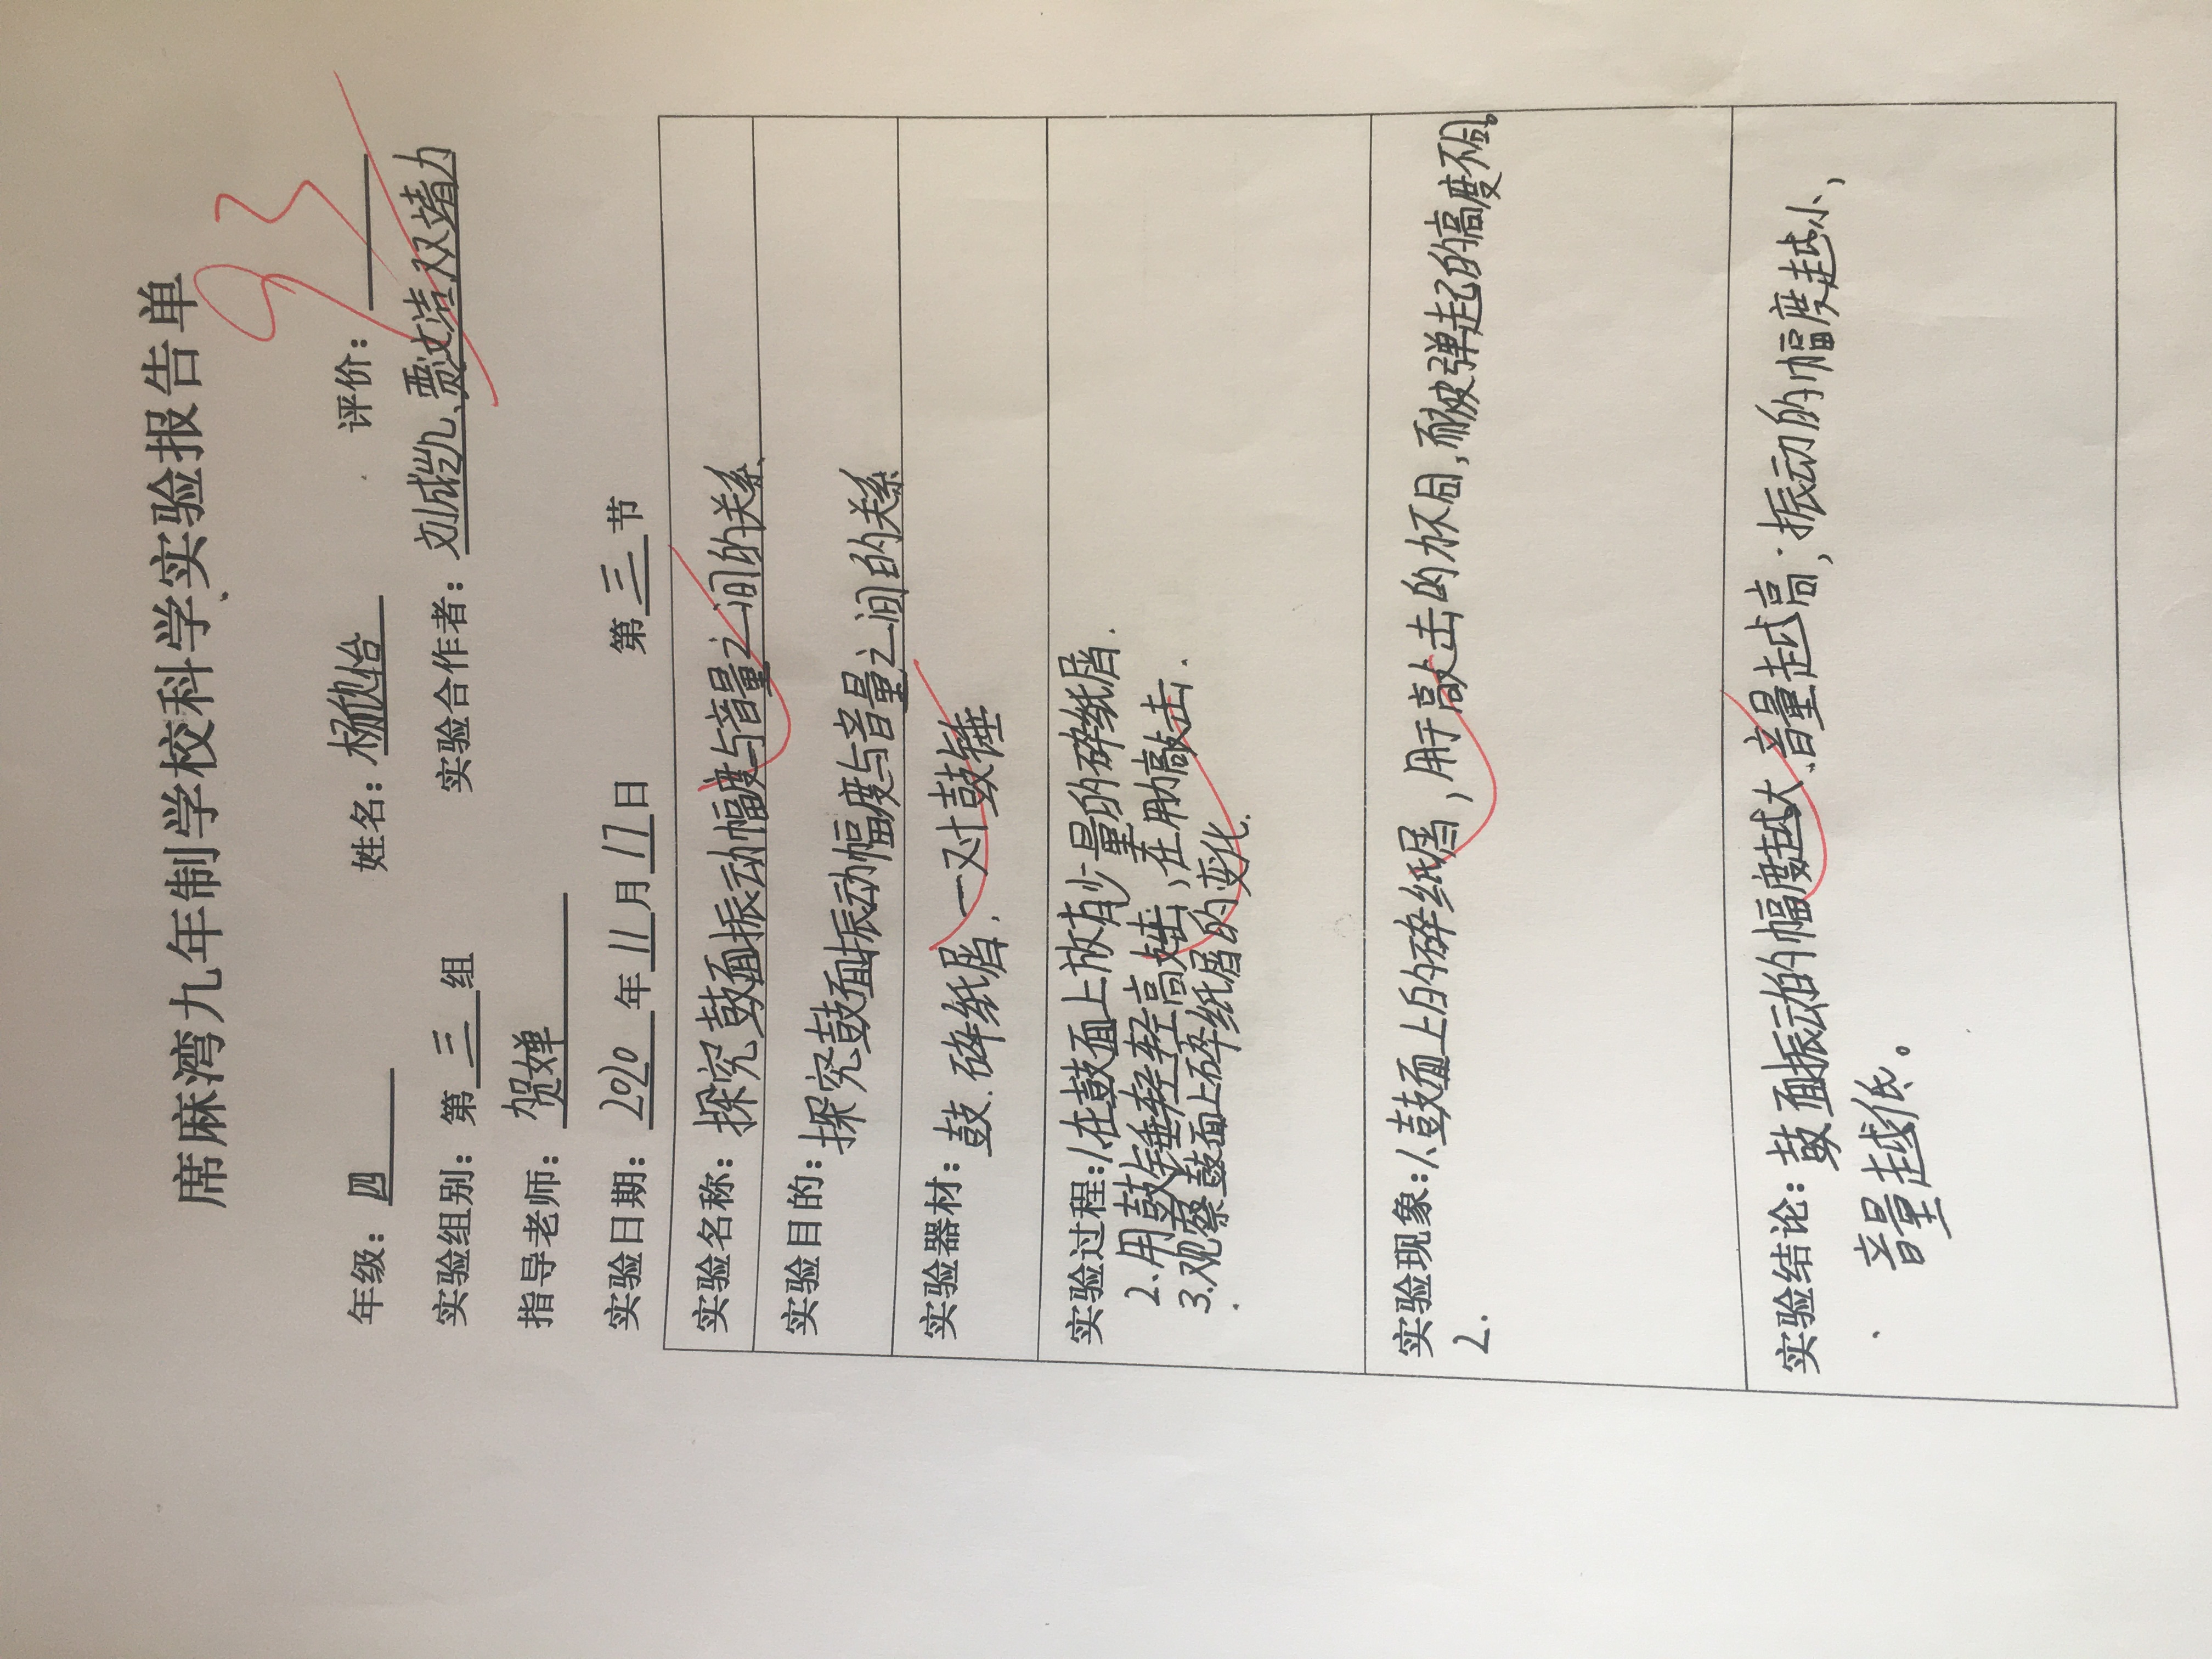 席麻湾九年制学校科学实验报告单
93
年级：四 姓名：杨悦怡 评价：
实验组别：第三组 实验合作者：刘诚凯、贾文浩、双靖力
指导老师：贺婵
实验日期：2020年11月17日 第三节
实验名称：探究鼓面振动幅度与音量之间的关系.
实验目的：探究鼓面振动幅度与音量之间的关系
实验器材：鼓.碎纸屑.一对鼓锤
实验过程：1.在鼓面上放有少量的碎纸屑.
2.用鼓锤轻轻高击,在用力高击.
3.观察鼓面上碎纸屑的变化.
实验现象：1.鼓面上的碎纸屑,用于敲击的力不同,而被弹起的高度不同。
2.
实验结论：鼓面振动的幅度越大、音量越高;振动的幅度越小、
音量越低。